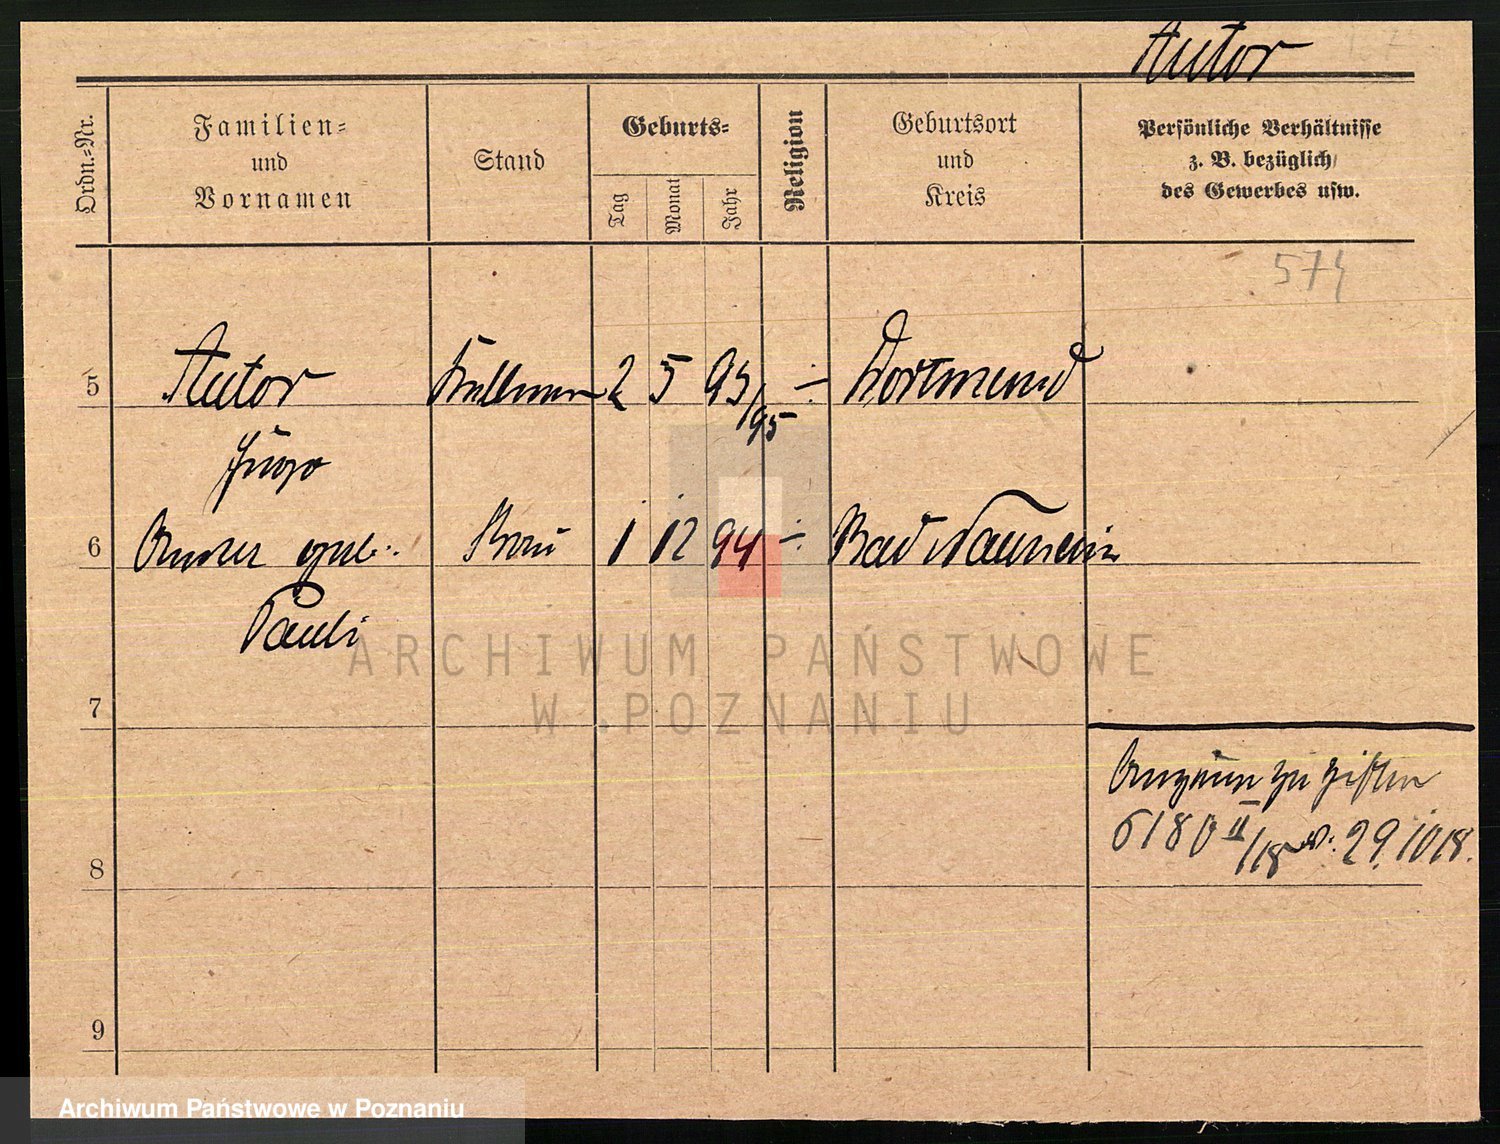 Autor
Ordn.-Nr.
Familien-
und
Vornamen
Stand
Geburts-
Tag
Monat
Jahr
Religion
Geburtsort
und
Kreis
Persönliche Verhältnisse
z. B. bezüglich
des Gewerbes usw.
574
5 Autor 2 5 93/95 -:- Dortmund
Hugo
6 geb. Frau 1 12 94 -:- Bad Nauheim
Pauli
7
zu
6180 II/18 v. 29.10.18.
8
9
ARCHIWUM PAŃSTWOWE
W POZNANIU
Archiwum Państwowe w Poznaniu